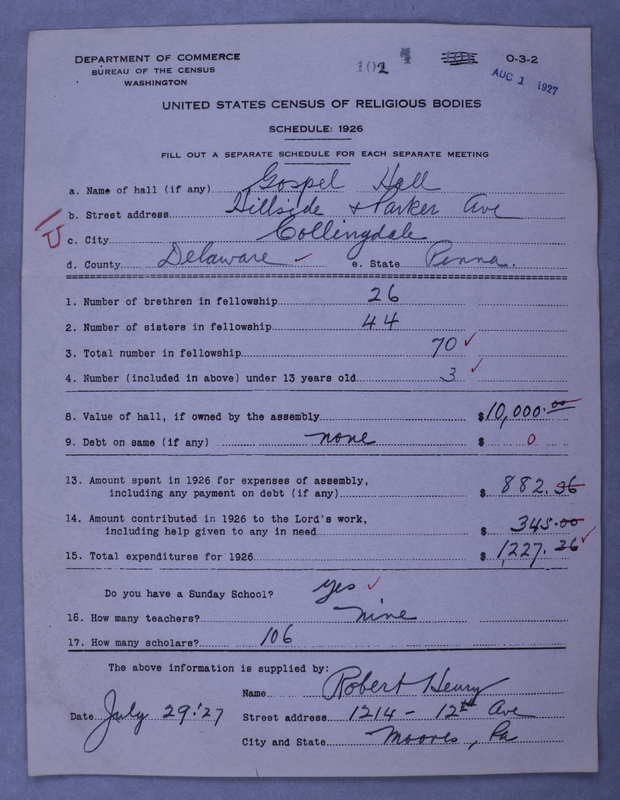 DEPARTMENT OF COMMERCE
BUREAU OF THE CENSUS
WASHINGTON
102
O-3-2
AUG 1 1927
UNITED STATES CENSUS OF RELIGIOUS BODIES
SCHEDULE: 1926
FILL OUT A SEPARATE SCHEDULE FOR EACH SEPARATE MEETING
a. Name of hall (if any) Gospel Hall
b. Street address Hillside & Parker Ave
c. City Collingdale
d. County Delaware e. State Penna.
1. Number of brethren in fellowship 26
2. Number of sisters in fellowship 44
3. Total number in fellowship 70
4. Number (included in above) under 13 years old 3
8. Value of hall, if owned by the assembly $10,000.00
9. Debt on same (if any) none $ 0
13. Amount spent in 1926 for expenses of assembly,
including any payment on debt (if any) $ 882.36
14. Amount contributed in 1926 to the Lord's work,
including help given to any in need $ 345.00
15. Total expenditures for 1926 $ 1227.36
Do you have a Sunday School? yes
16. How many teachers? nine
17. How many scholars? 106
The above information is supplied by:
Name Robert Henry
Date July 29.'27 Street address 1214 - 12th Ave
City and State Moores, Pa